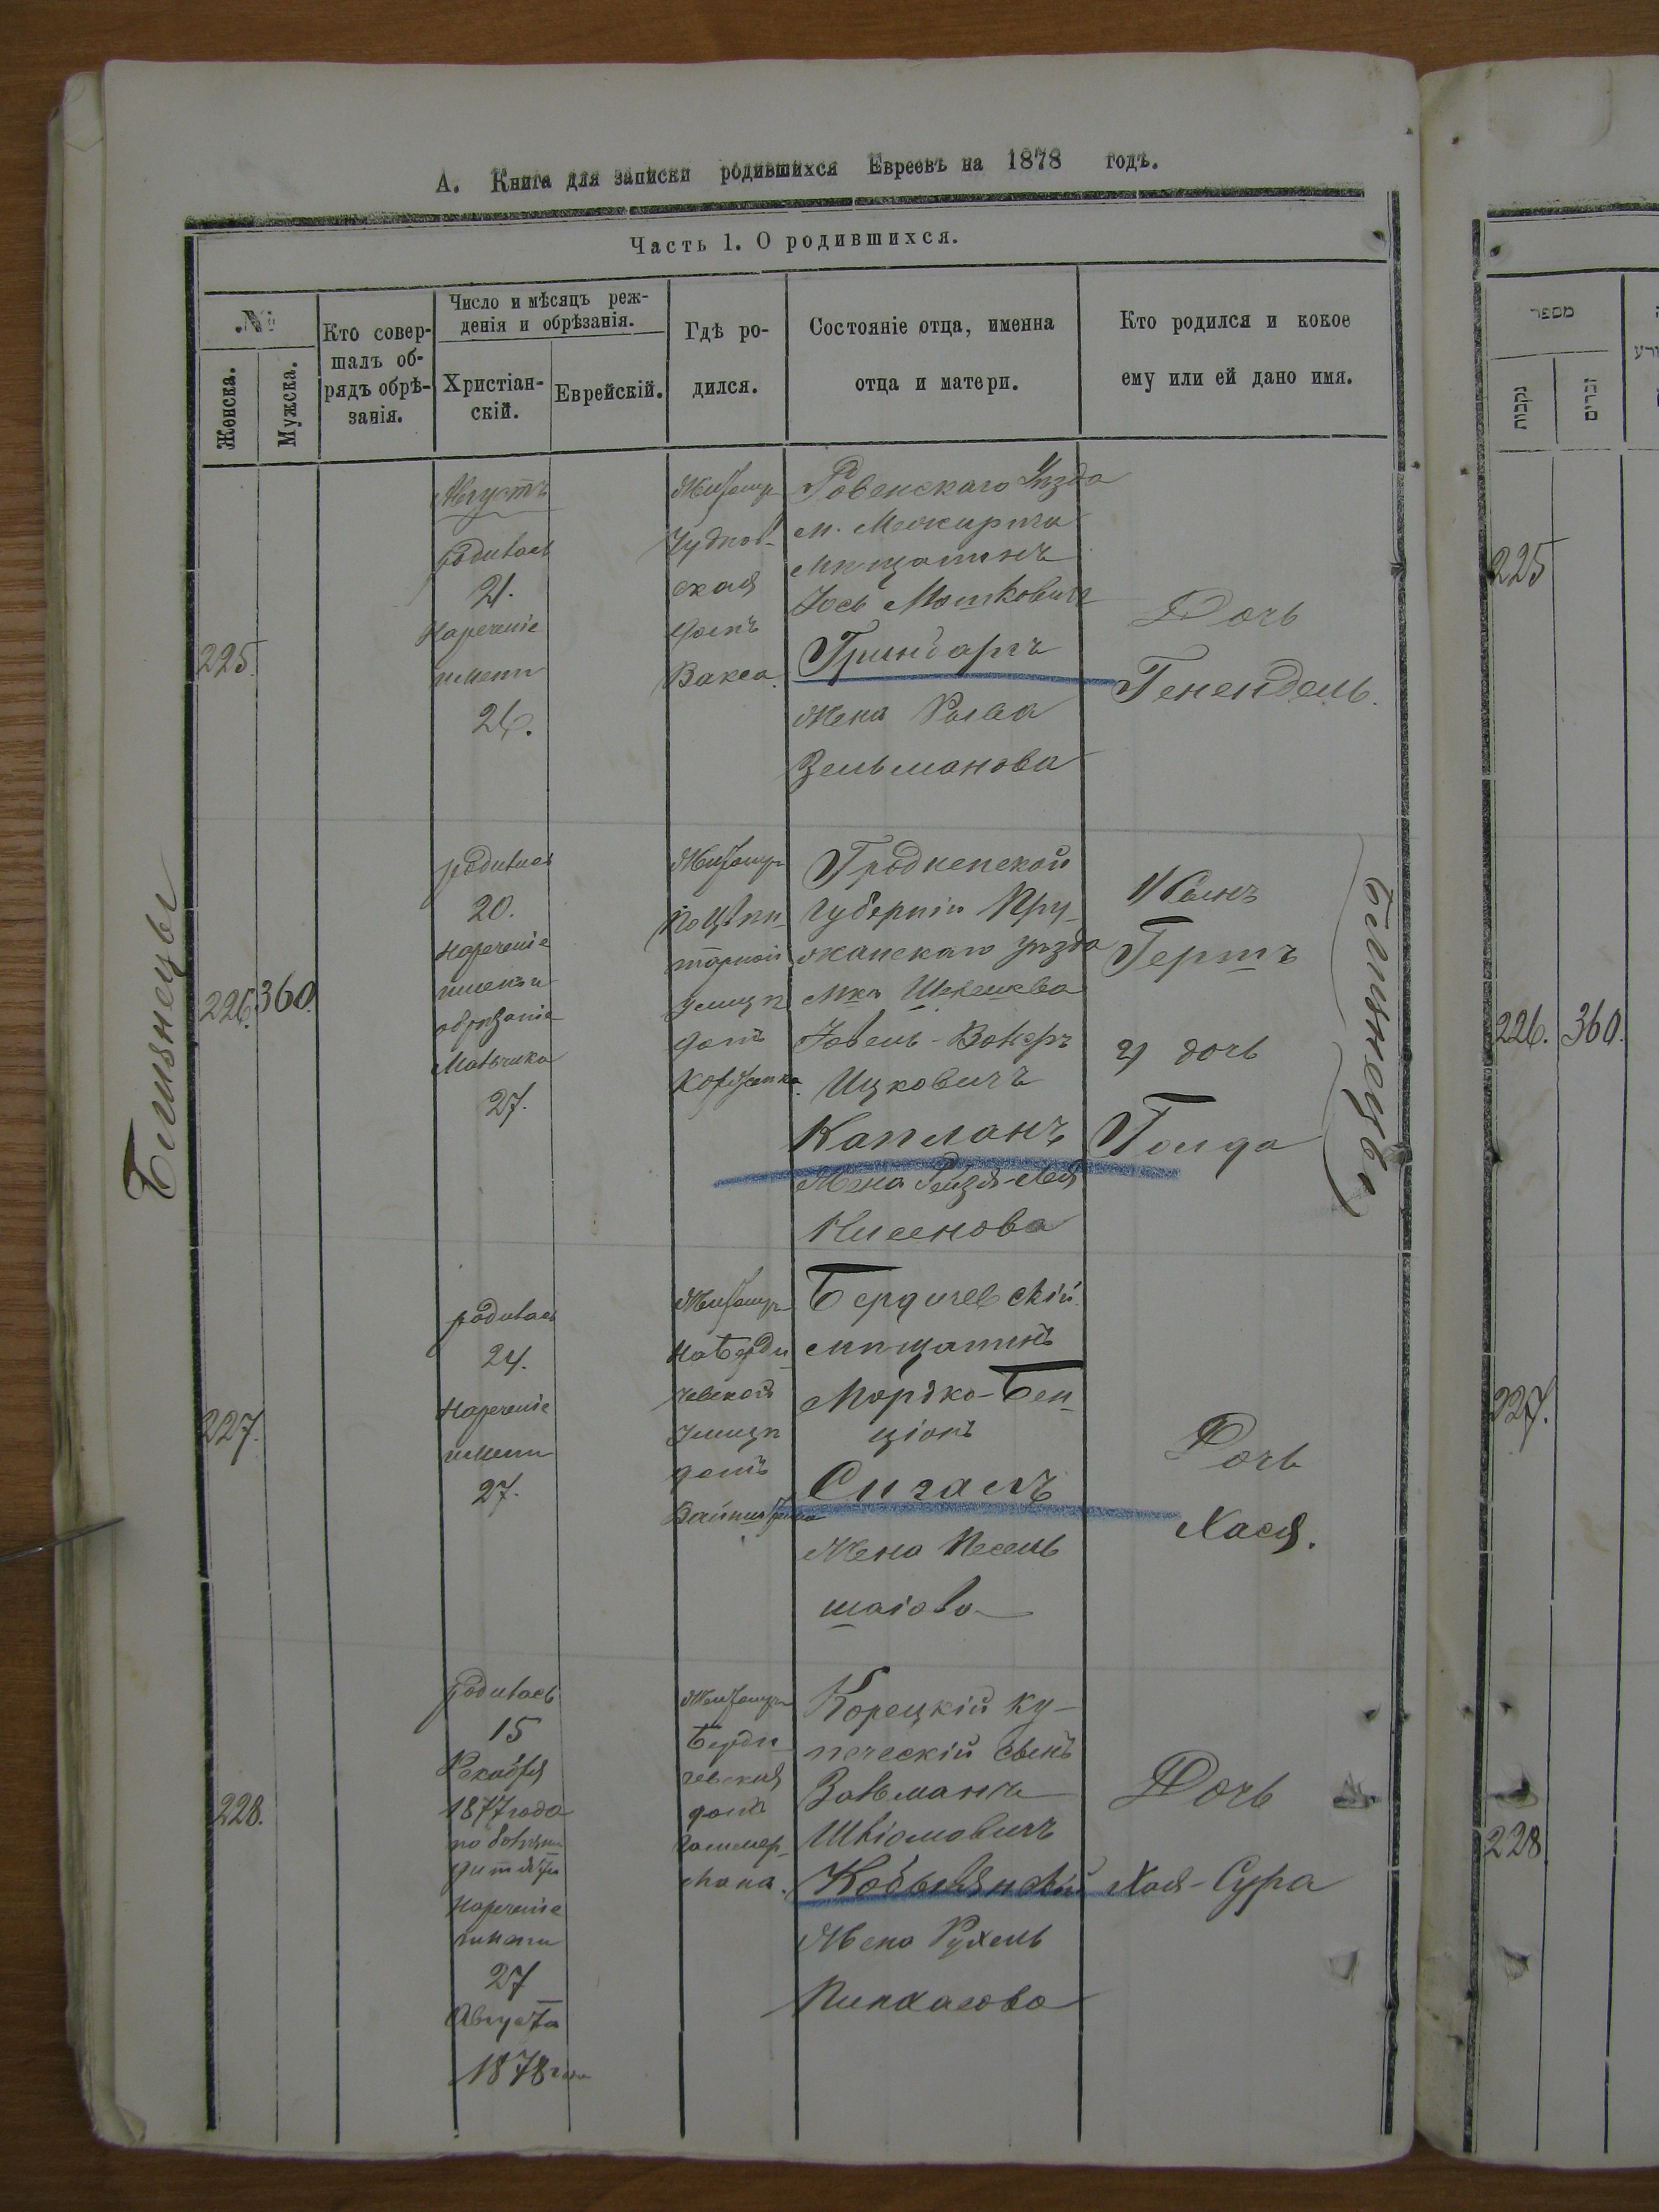 А. Книга для записки родившихся Евреевъ на 1878 годъ.
Часть 1. О родившихся.
№
Женска.
Мужска.
Кто совер-
шалъ об-
рядъ обрѣ-
занія.
Число и мѣсяцъ реж-
денія и обрѣзанія.
Христіан-
скій.
Еврейскій.
Гдѣ ро-
дился.
Состояніе отца, именна
отца и матери.
Кто родился и кокое
ему или ей дано имя.
225.
Августъ
родилась
21.
Нареченіе
имени
26.
Житомір
Чуднов-
ская
домъ
Вакса.
Ровенскаго Уѣзда
м. Межирича
мѣщанинъ
Іось Мошковичъ
Гриндаръ
Жена
Зельманова
Дочь
Генендель.
Близнецы
226.
360.
родились
20.
Нареченіе
имени и
обрѣзаніе
Мальчика
27.
Житомір
тарной
улицѣ
домъ
Гродненской
Губерніи Пру-
жанскаго уѣзда
Мкъ Шерешева
Іовель-Вольфъ
Ицковичъ
Капланъ
Жена Рейзя-Лея
Нисенова
1/ Сынъ
Гершъ
2/ дочь
Голда
Близнецы
227.
родилась
24.
Нареченіе
имени
27.
Житомір
на Берди-
чевской
Улицѣ
домъ
Бердичевскій
мѣщанинъ
Мордко-Бен-
ціонъ
Сигалъ
Жена Песель
шаіова
Дочь
Хася.
228.
родилась
15
Декабря
1877 года
по болѣзни
дитяти
Нареченіе
имени
27
Августа
1878 года
Житомір
Берди-
чевская
домъ
Гаммер-
Корецкій ку-
печескій сынъ
Зельманъ
Шліомовичъ
Кобылянскій
Жена Рухель
Пинхасова
Дочь
Хая-Сура
מספר
נקבות
זכרים
225
226.
360.
227.
228